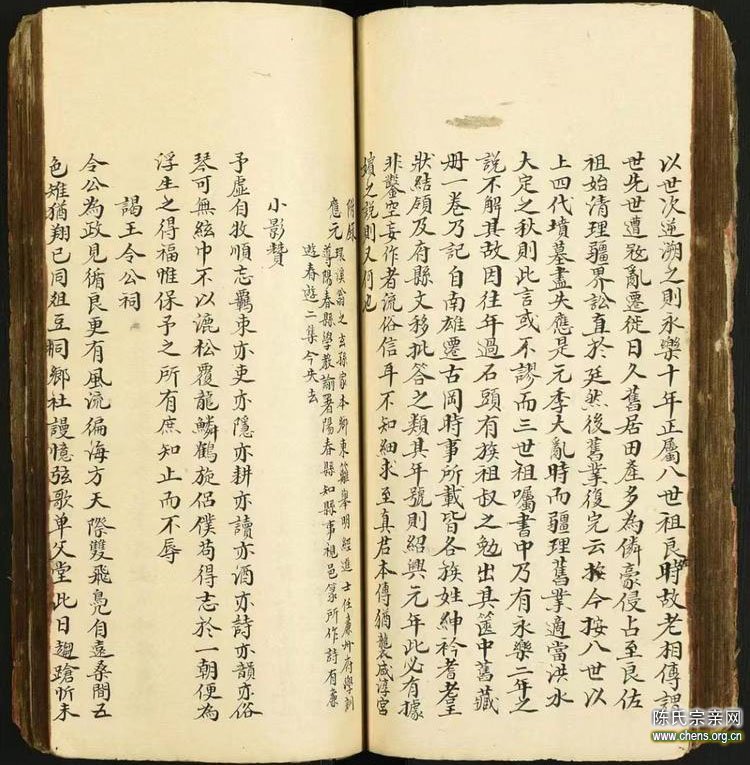 以世次逆溯之則永樂十年正屬八世祖良時故老相傳謂
世先世遭寇亂遷徙日久舊居田產多為鄰豪侵占至良佐
祖始清理疆界訟直於廷然後舊業復完云按今按八世以
上四代墳墓盡失應是元季大亂時而疆理舊業適當洪水
大定之秋則此言或不謬而三世祖囑書中乃有永樂二年之
說不解其故因往年過石頭有族祖叔之勉出其篋中舊藏
冊一卷乃記自南雄遷古岡時事所載皆各族姓紳衿耆老呈
狀結領及府縣文移批答之類其年號則紹興元年此必有據
非鑿空妄作者流俗信耳不知細求至真君本傳猶襲咸淳宮
嬪之說則又何也
附錄
應元 環溪翁之玄孫家本鄉東籬舉明經進士任廉州府學訓
導陽春縣學教諭署陽春縣知縣事祀邑篆所作詩有
遊春遊二集今失去
小影贊
予虛自牧順忘羈束亦吏亦隱亦耕亦讀亦酒亦詩亦韻亦俗
琴可無絃巾不以漉松覆龍鱗鶴旋侶僕苟得志於一朝便為
浮生之得福惟保予之所有庶知止而不辱
謁王令公祠
令公為政見循良更有風流徧海方天際雙飛鳧自遠桑間五
色雉猶翔已同俎豆桐鄉社謾憶弦歌單父堂此日趨蹌忻未
陈氏宗亲网
www.chens.org.cn